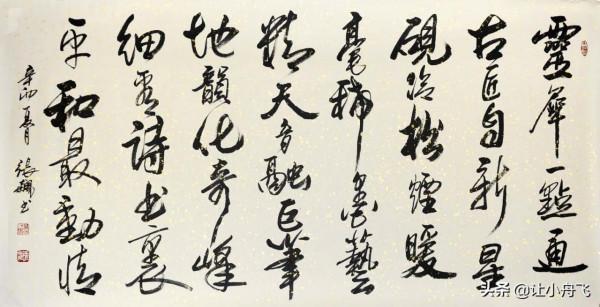 靈犀一點通
古匠自新
硯冷松煙暖
毫墨藝
精天音融巨筆
地韻化奇峰
細看詩书裏
平和最動情
辛卯夏月 張书
头条 @让小舟飞